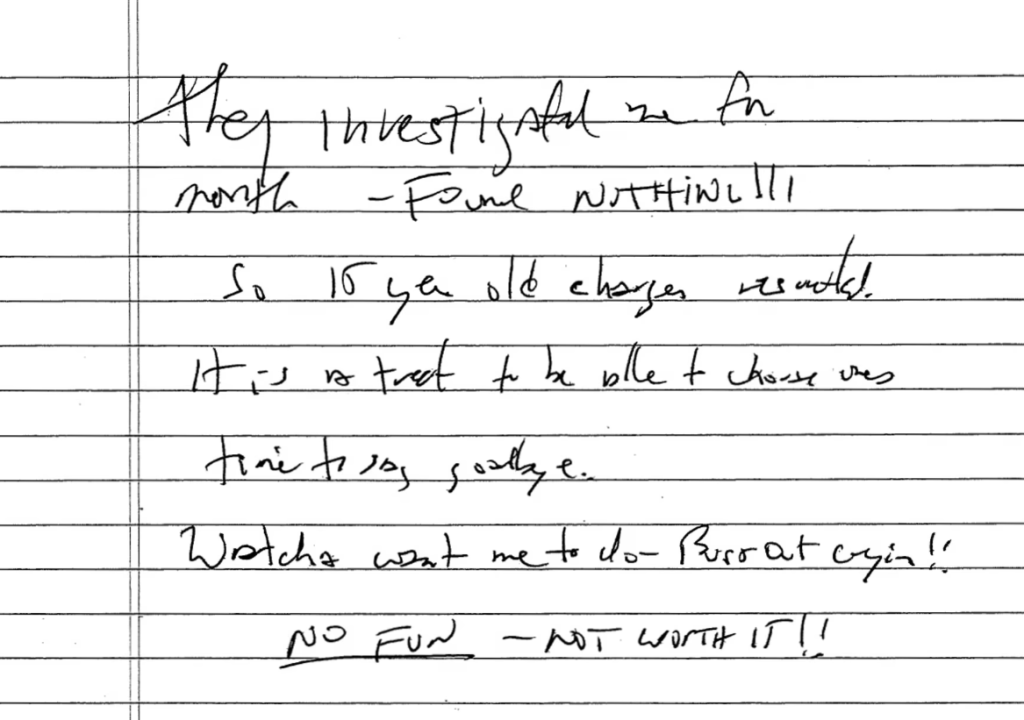 they investigated me for
month - Found NOTHING!!!
So 15 year old charges resulted.
It is a treat to be able to choose ones
time to say goodbye.
Watcha want me to do - Burst out cryin!!
NO FUN - NOT WORTH IT!!